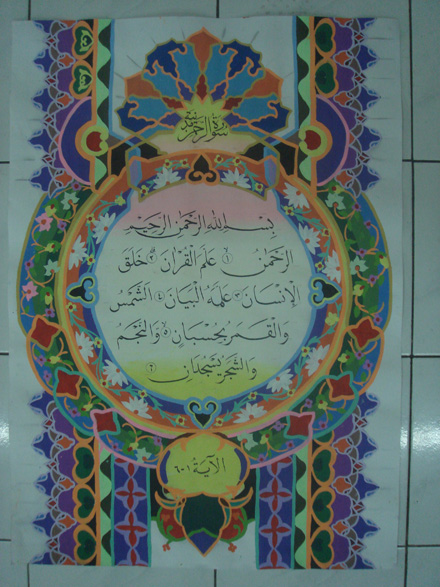 سورة الرحمن
بسم الله الرحمن الرحيم
الرَّحْمٰنُ ١ عَلَّمَ الْقُرْاٰنَ ٢ خَلَقَ
الْاِنْسَانَ ٣ عَلَّمَهُ الْبَيَانَ ٤ اَلشَّمْسُ
وَالْقَمَرُ بِحُسْبَانٍ ٥ وَالنَّجْمُ
وَالشَّجَرُ يَسْجُدَانِ ٦
الآية ١-٦